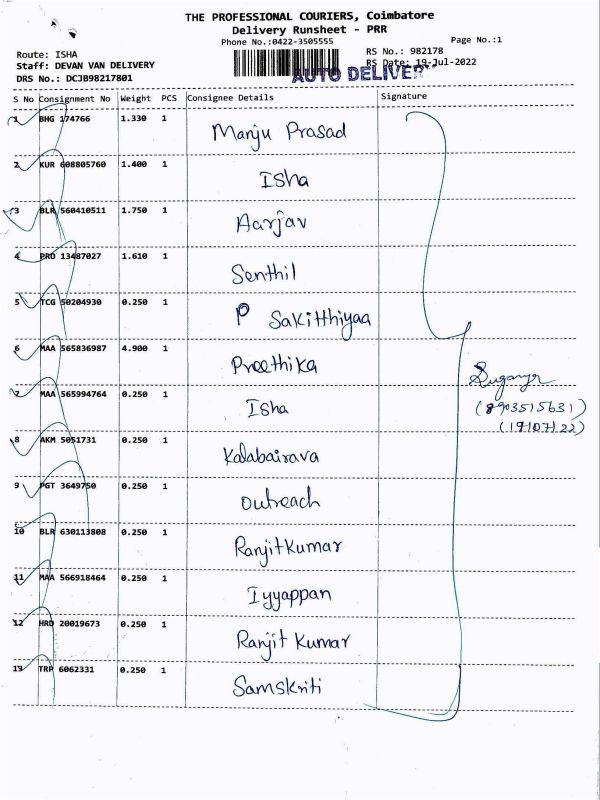 THE PROFESSIONAL COURIERS, Coimbatore
Delivery Runsheet - PRR
Phone No.:0422-3505555 Page No.:1
Route: ISHA RS No.: 982178
Staff: DEVAN VAN DELIVERY RS Date: 19-Jul-2022
AUTO DELIVERY
DRS No.: DCJB98217801
S No Consignment No Weight PCS Consignee Details Signature
1 BHG 174766 1.330 1 Manju Prasad
2 KUR 608805760 1.400 1 Isha
3 BLR 560410511 1.750 1 Aarjav
4 PRO 13487027 1.610 1 Senthil
5 TCG 50204930 0.250 1 P Sakitthiyaa
6 MAA 565836987 4.900 1 Preethika
7 MAA 565994764 0.250 1 Isha
Suganya
(8903515631)
(19/07/22)
8 AKM 5051731 0.250 1 Kalabairava
9 PGT 3649750 0.250 1 Outreach
10 BLR 630113808 0.250 1 RanjitKumar
11 MAA 566918464 0.250 1 Iyyappan
12 HRD 20019673 0.250 1 Ranjit Kumar
13 TRP 6062331 0.250 1 Samskriti